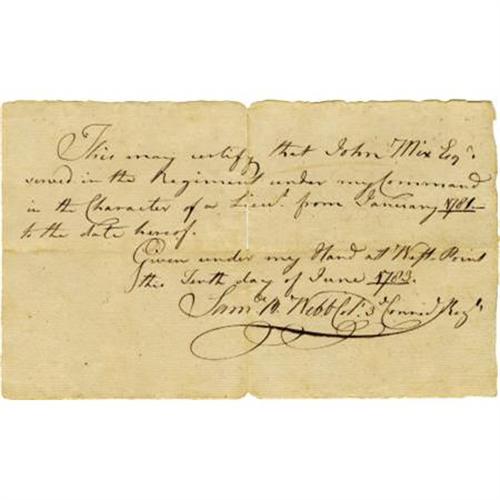 This may certify that John Mix Esqr.
served in the Regiment under my Command
in the Character of a Lieut. from January 1781—
to the date hereof.
Given under my Hand at West Point
this Tenth day of June 1783.
Saml. B. Webb Col. 3d Connect Regt.